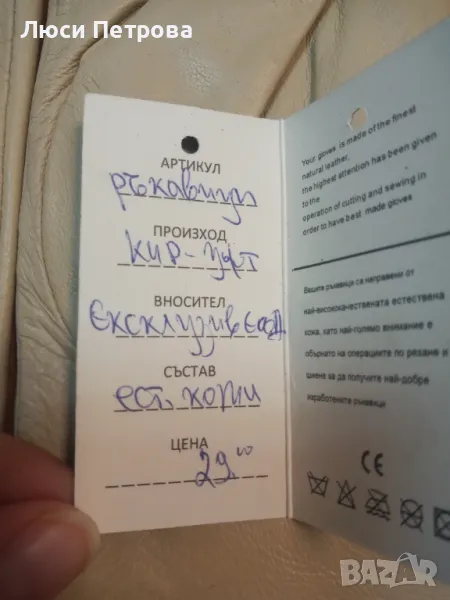 Люси Петрова
АРТИКУЛ
ръкавици
ПРОИЗХОД
КНР-
ВНОСИТЕЛ
Ексклузив ЕООД
СЪСТАВ
ест. кожи
ЦЕНА
29.00
Your gloves is made of the finest
natural leather.
the highest attention has been given
to the
operation of cutting and sewing in
order to have best made gloves
Вашите ръкавици са направени от
най-висококачествената естествена
кожа, като най-голямо внимание е
обърнато на операциите по рязане и
шиене за да получите най-добре
изработените ръкавици
CE
BAZAR